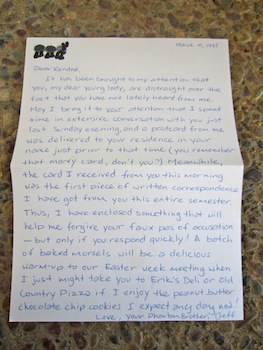 March 9, 1987
Dear Kendra,
It has been brought to my attention that
you, my dear young lady, are distraught over the
fact that you have not lately heard from me.
May I bring it to your attention that I spend
time in extensive conversation with you just
last Sunday evening, and a postcard from me
was delivered to your residence in your
name just prior to that time (you remember
that marty card, don't you?) Meanwhile,
the card I received from you this morning
was the first piece of written correspondence
I have got from you this entire semester.
Thus, I have enclosed something that will
help me forgive your faux pas of accusation
— but only if you respond quickly! A batch
of baked morsels will be a delicious
warm-up to our Easter week meeting when
I just might take you to Erik's Deli or Old
Country Pizza if I enjoy the peanut butter
chocolate chip cookies I expect any day now!
Love, your Phantom Brother, Jeff